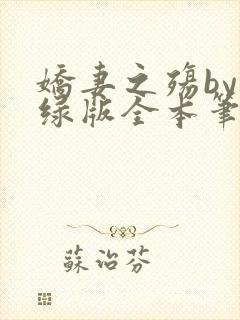 嬌妻之殤by
绿版全本筆
蘇治芬